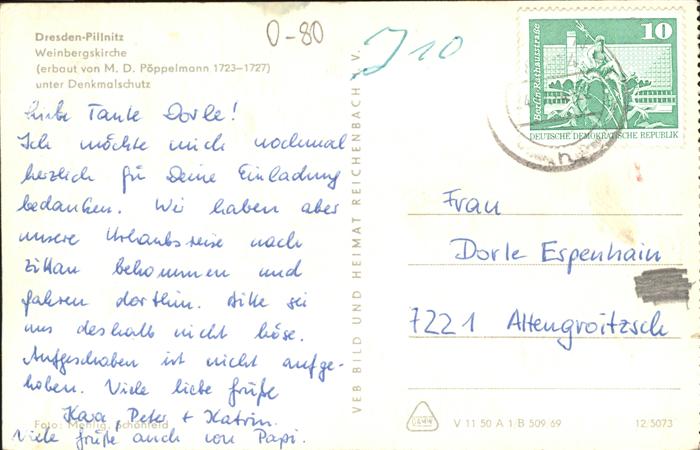 Dresden-Pillnitz
Weinbergskirche
(erbaut von M. D. Pöppelmann 1723–1727)
unter Denkmalschutz
0-80
J 10
Liebe Tante Dorle!
Ich möchte mich nochmal
herzlich für Deine Einladung
bedanken. Wir haben aber
unsere Urlaubsreise nach
Zittau bekommen und
fahren dorthin. Bitte sei
uns deshalb nicht böse.
Aufgeschoben ist nicht aufge-
hoben. Viele liebe Grüße
Peter + Katrin.
Viele Grüße auch von Papi.
Foto: Mehlig, Schönfeld
VEB BILD UND HEIMAT REICHENBACH V.
10
Berlin, Rathausstraße
DEUTSCHE DEMOKRATISCHE REPUBLIK
Frau
Dorle Espenhain
7221 Altengroitzsch
V 11 50 A 1/B 509/69
12/5073